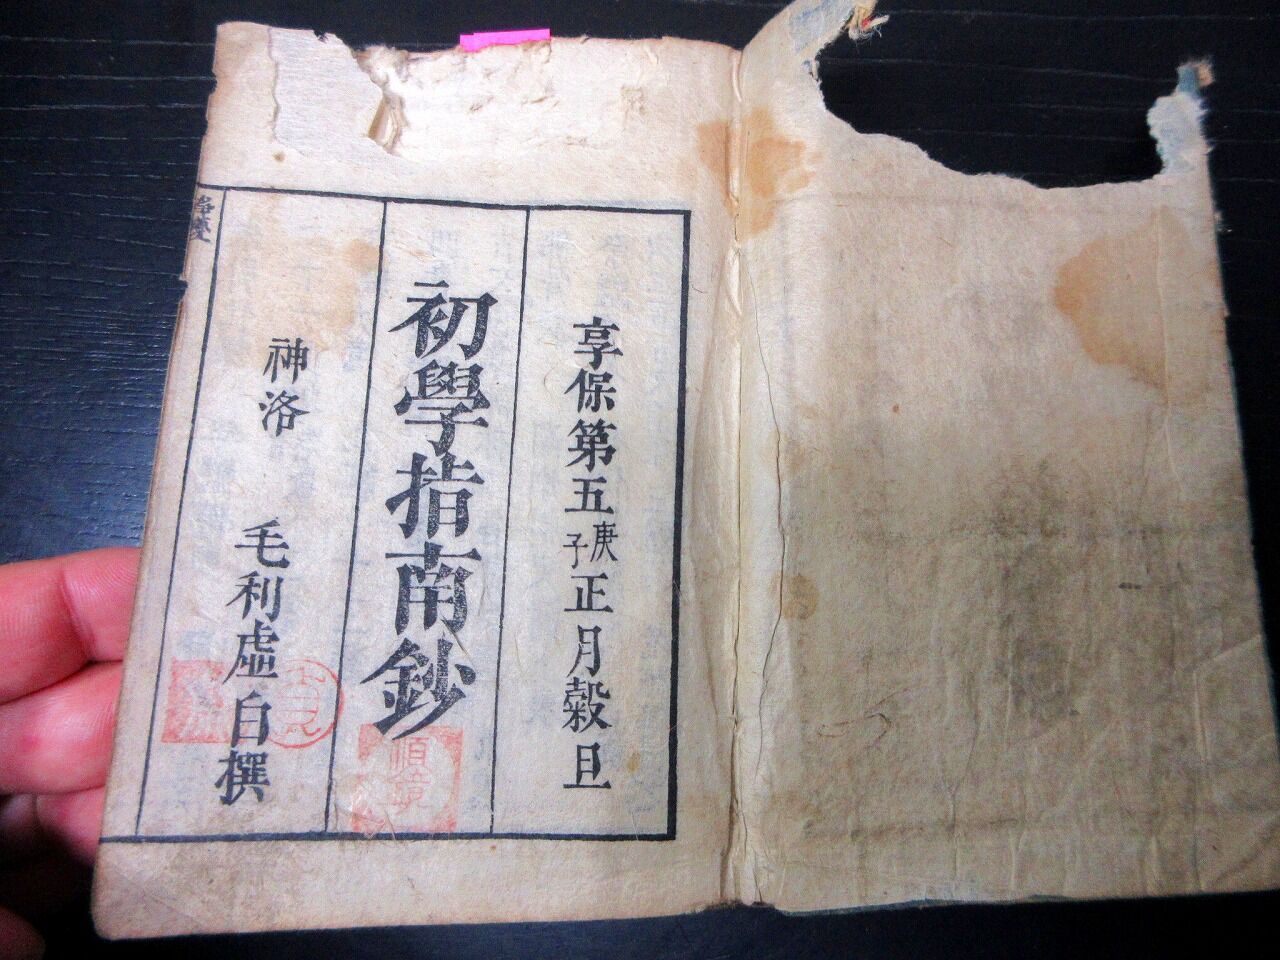 享保第五庚子正月穀旦
初學指南鈔
神洛 毛利虚白撰
順鏡